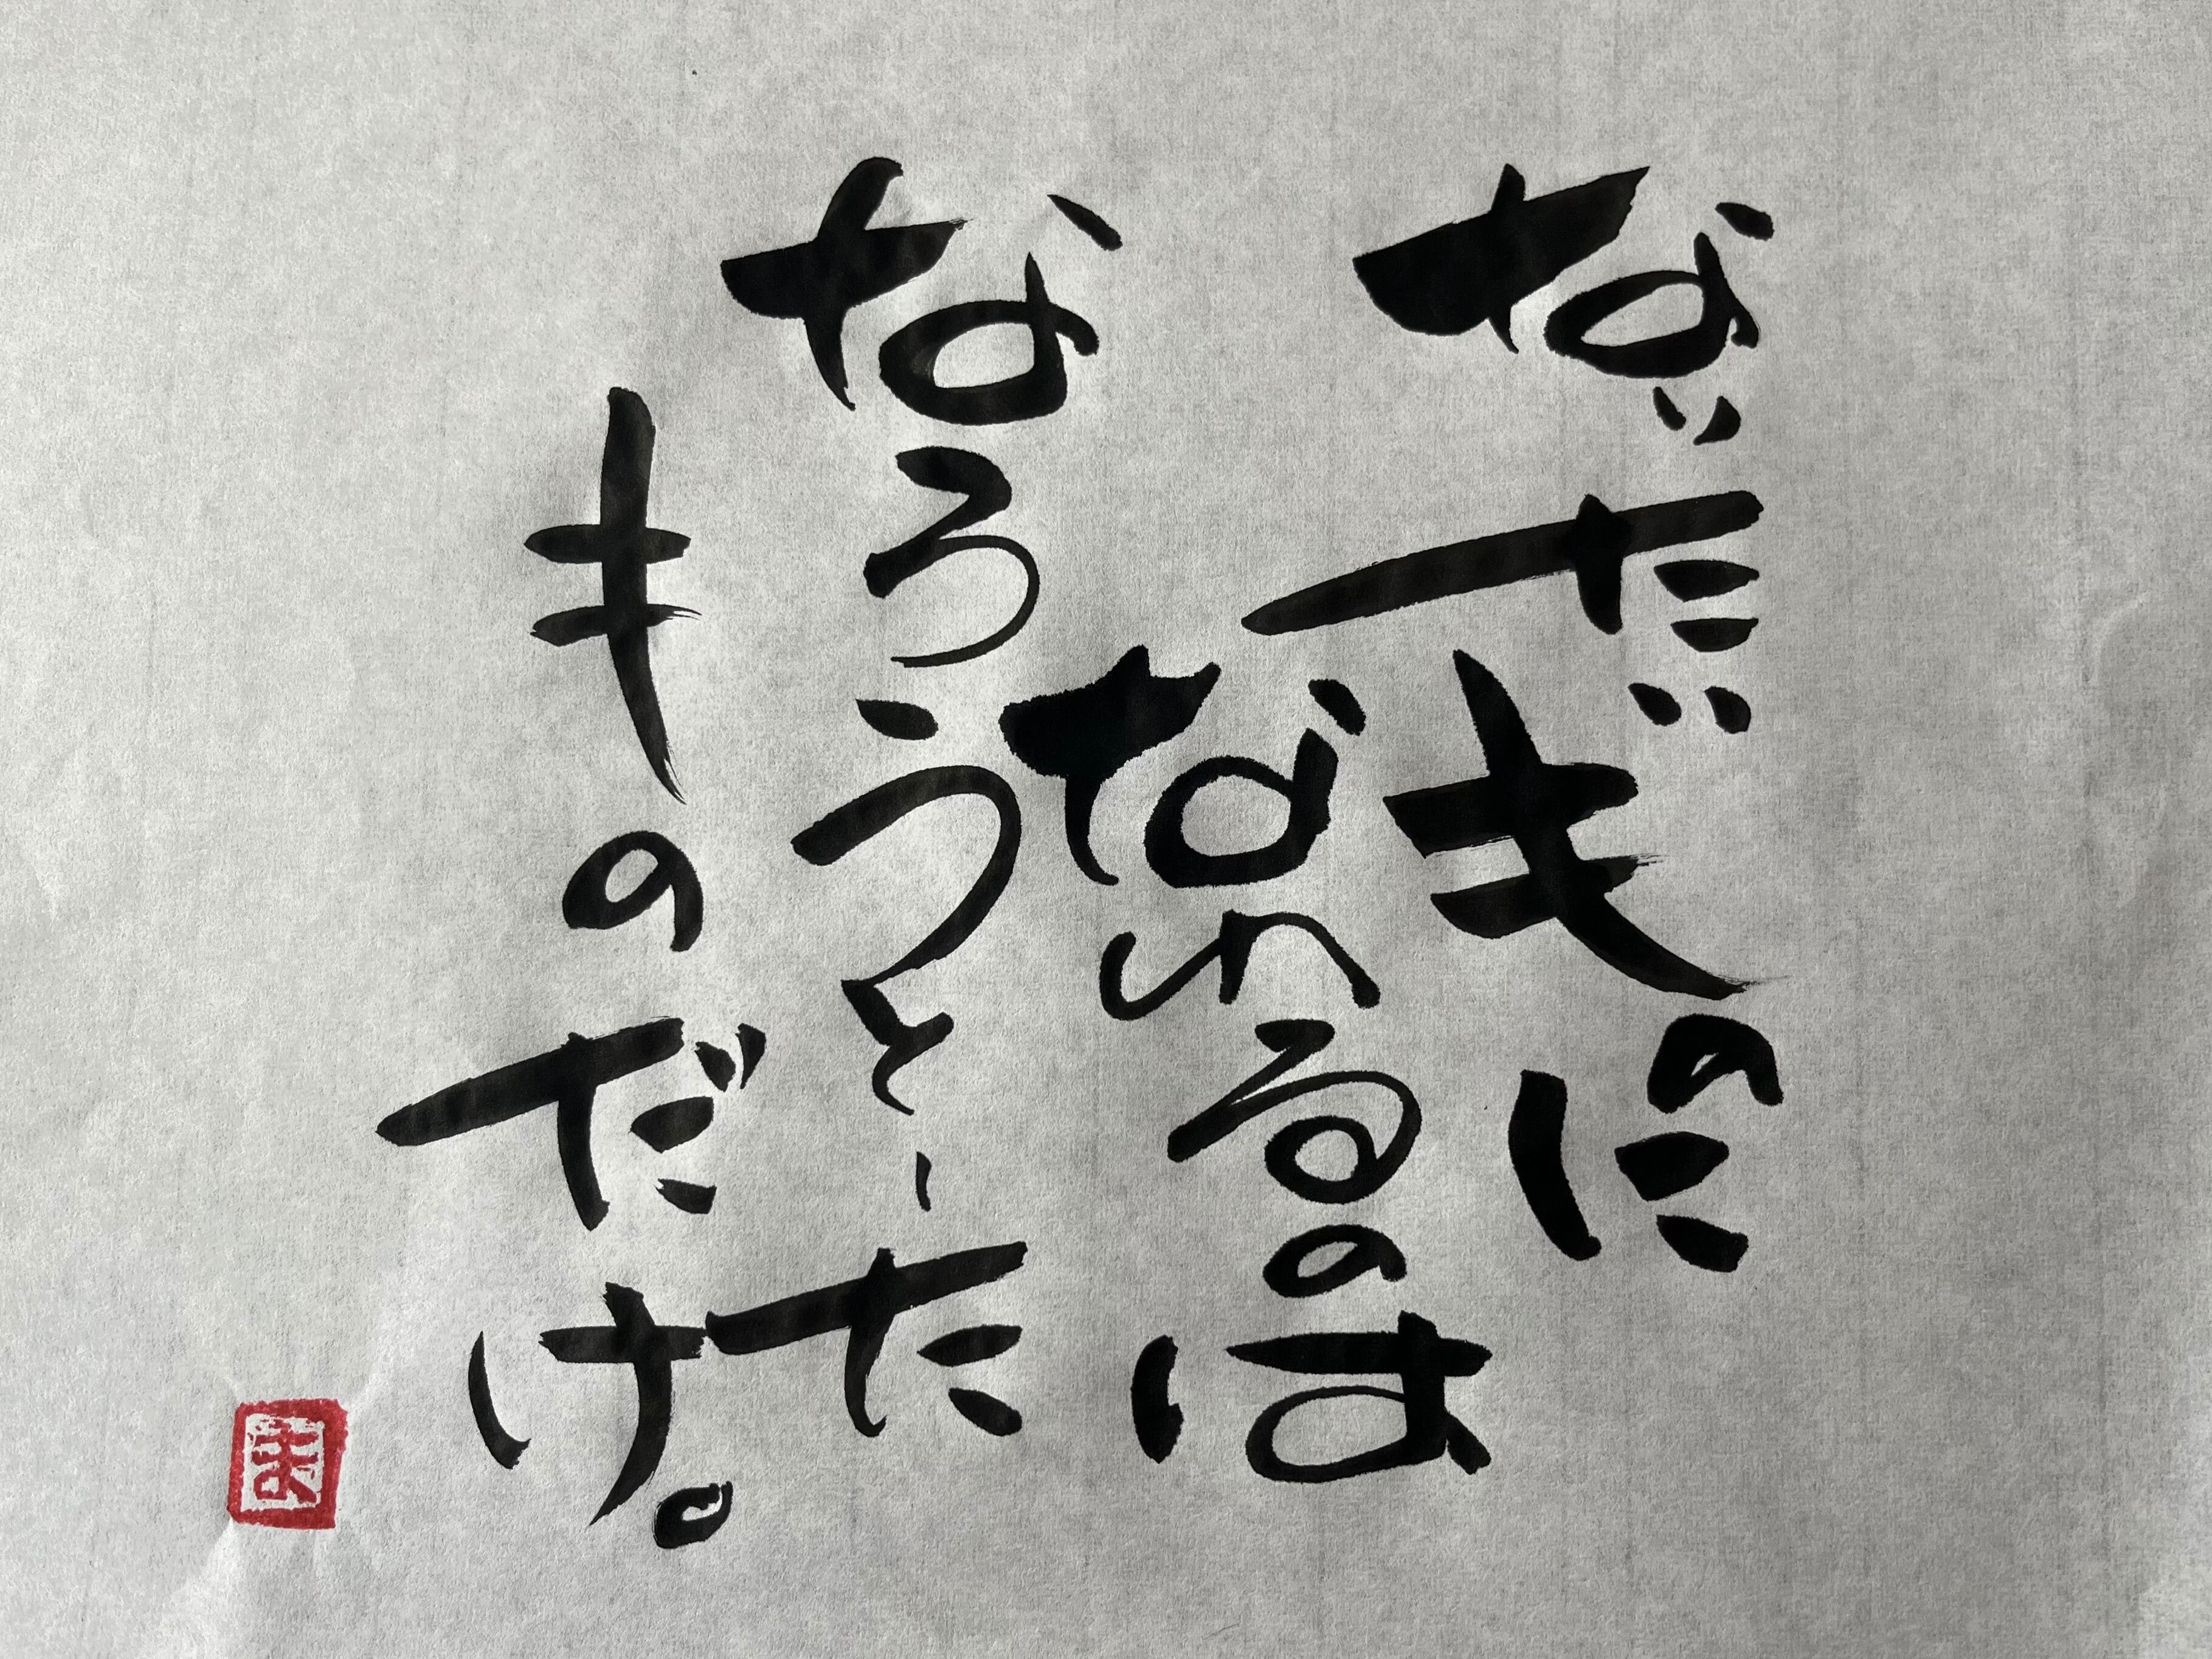 なりたいものに
なれるのは
なろうとした
ものだけ。
ま